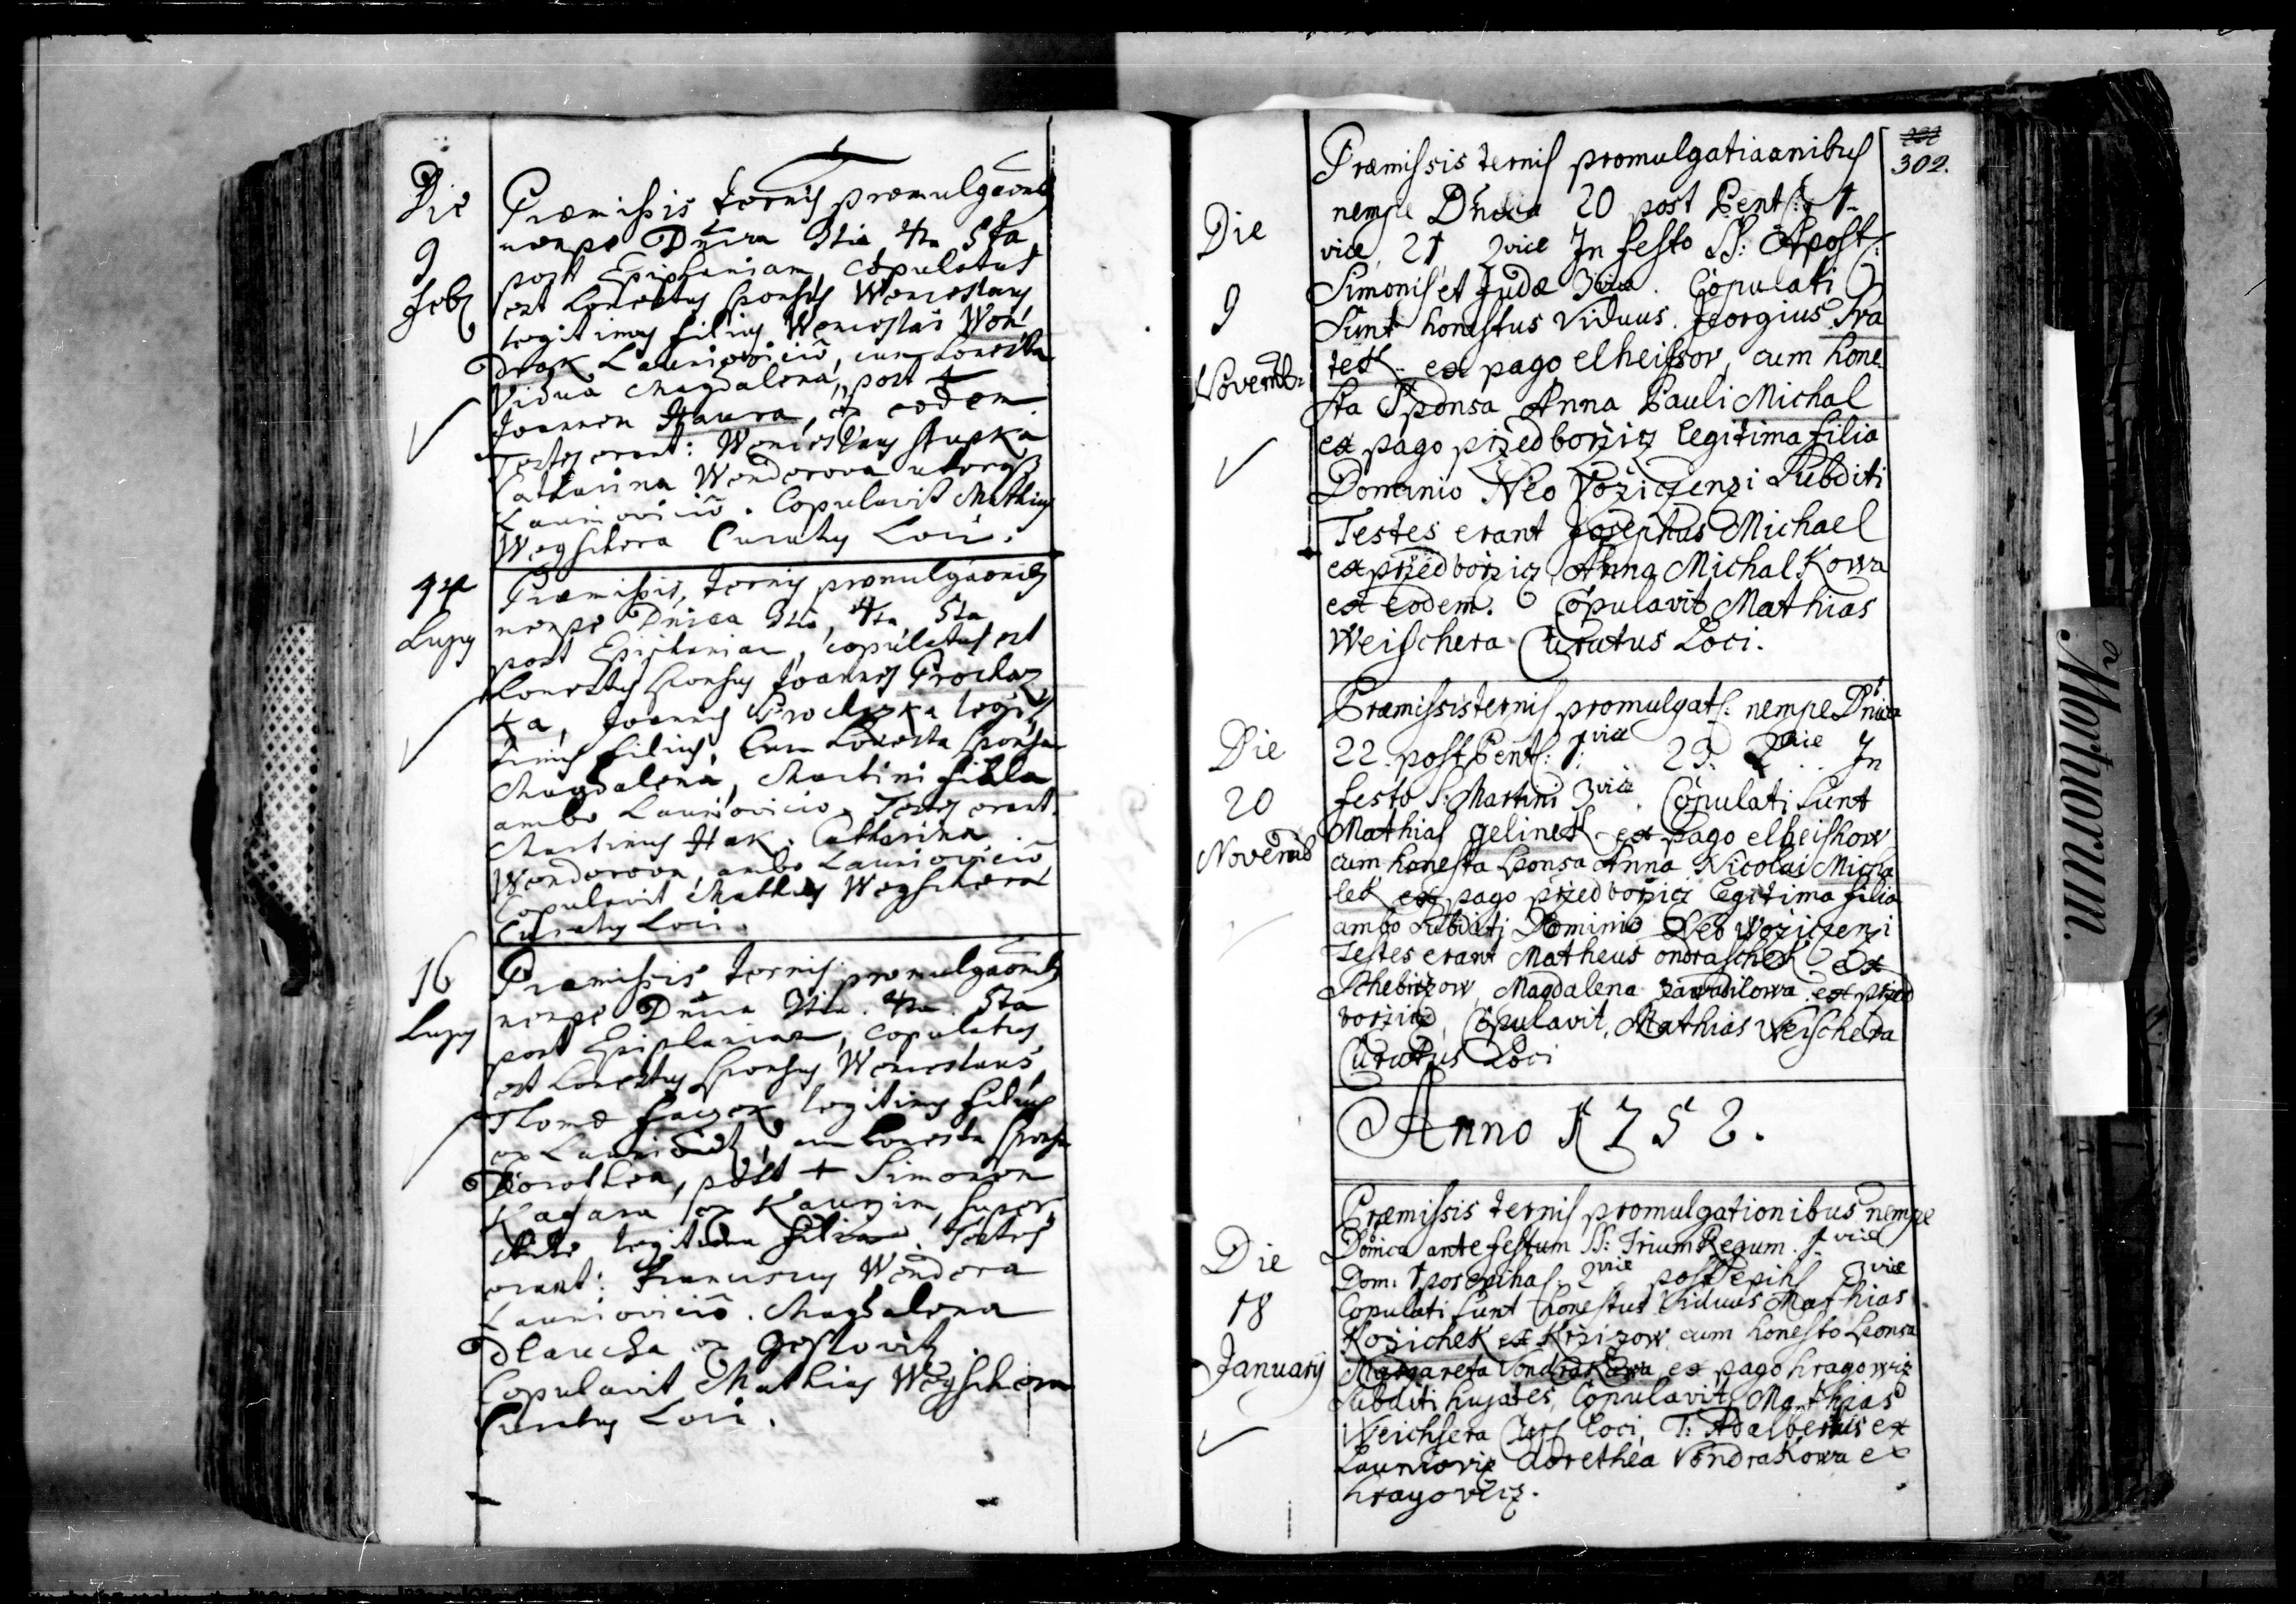 Die
9
Feb
Præmissis ternis promulgaonib
nempe Dnica 3tia 4ta 5ta
post Epiphaniam, copulatus
est honestus sponsus Wenceslaus
legitimus filius Wenceslai Won
drak Launiovicio, cum honesta
Vidua Magdalena, post †
Joannem Haura, ex eodem
Testes erant: Wenceslaus Stupka
Catharina Wondorova utorq
Launiovicio. Copulavit Mathias
Weyschera Curatus Loci.
14
hujus
Præmissis, ternis promulgaonib
nempe Dnica 3tia, 4ta 5ta
post Epiphaniam, copulatus est
honestus sponsus Joannes Prochaz
ka, Joannis Prochazka legi
timus filius, Cum honesta sponsa
Magdalena, Martini filla
ambo Launiovicio. Testes erant.
Martinus Hak. Catharina
Wondorova, ambo Launiovicio
Copulavit Mathias Weyschera
Curatus Loci.
16
hujus
Præmissis ternis promulgaonib
nempe Dnica 3tia. 4ta. 5ta
post Epiphaniam, copulatus
est honestus sponsus Wenceslaus
Thomæ legitimus filius
ex cum honesta sponsa
Dorothea, post † Simonem
ex Kaunim, super
legitima filia. Testes
erant: Franciscus Wondora
Launiovicio. Magdalena
ex
Copulavit Mathias Weyschera
Curatus Loci.
302.
Præmissis ternis promulgatiaonibus
Die
9
Novemb:
nempe Dnica 20 post Pent: 1
vice, 21, 2 vice In festo SS: Apost:
Simonis et Judæ 3 vice. Copulati
Sunt honestus Viduus Georgius Sva
tek ex pago elheissow, cum hone
sta Sponsa Anna Pauli Michal
ex pago przedborzicz legitima filia
Dominio Neo Voziczensi Subditi
Testes erant Josephus Michael
ex przedborzicz Anna Michalkowa
ex eodem. Copulavit Mathias
Weischera Curatus Loci.
Die
20
Novemb
Præmissis ternis promulgat: nempe Dnica
22 post Pent: 1 vice 23. 2 vice In
festo S: Martini 3 vice. Copulati Sunt
Mathias gelinek ex pago elheishow
cum honesta Sponsa Anna Nicolai Micha
lek ex pago przedborzicz legitima filia
ambo Subditi Dominio Neo Woziczensi
Testes erant Matheus ondraschek ex
Schebirzow, Magdalena zawadilowa ex przed
borzicz, Copulavit, Mathias Weischera
Curatus Loci
Anno 1752.
Die
18
January
Præmissis ternis promulgationibus nempe
Domica ante festum SS: Trium Regum. 1 vice
Dom: 1 pos epiha: 2 vice post epih 3 vice
Copulati Sunt honestus Viduus Mathias
Kozichek ex Krzizow cum honesto Sponsa
Margareta Vondrakowa ex pago hragowiz
Subditi hujates, Copulavit Mathias
Weichsera Loci, T: Adalbertus ex
Launiovix dorethea Vondrakowa ex
hragovicz.
Mortuorum.